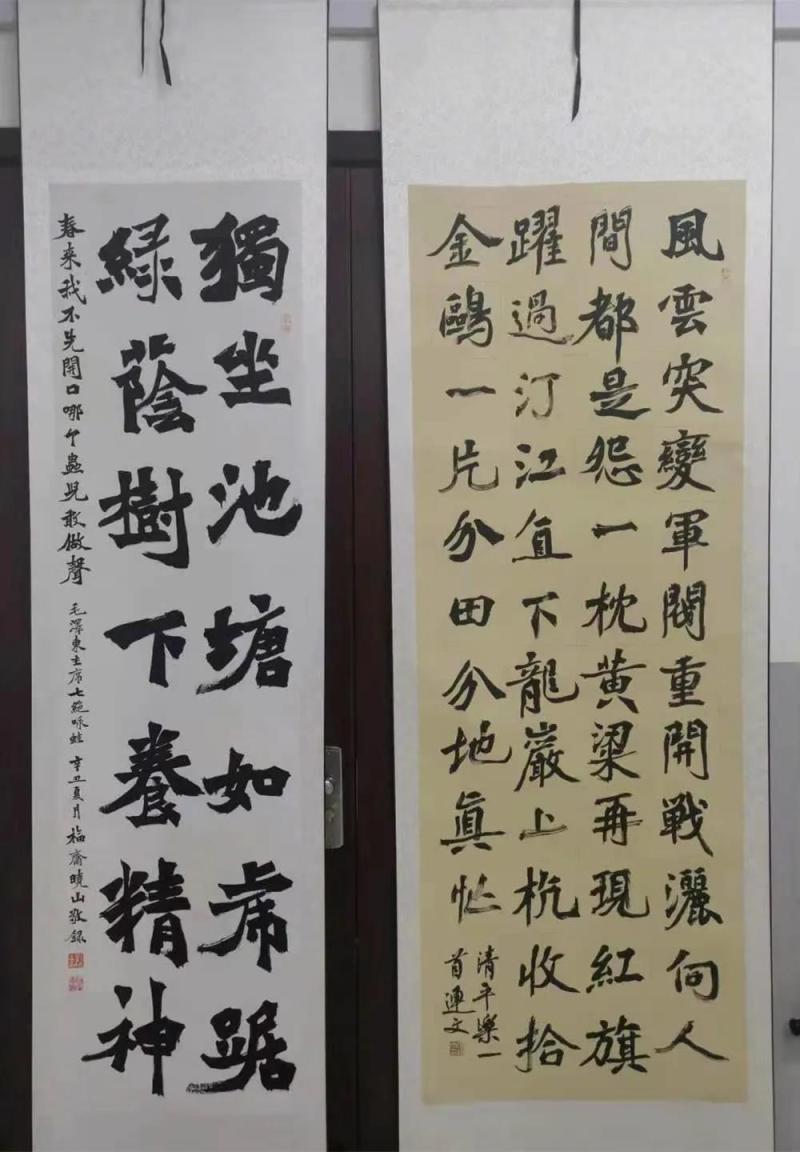 風雲突變軍閥重開戰灑向人
間都是怨一枕黄梁再現紅旗
躍過汀江直下龍巖上杭收拾
金鷗一片分田分地眞忙
清平樂一
首連文
獨坐池塘如虎踞
緑蔭樹下養精神
春来我不先開口哪个蟲兒敢做聲 毛澤東主席七絶咏蛙 辛丑夏月 福齋曉山敬録